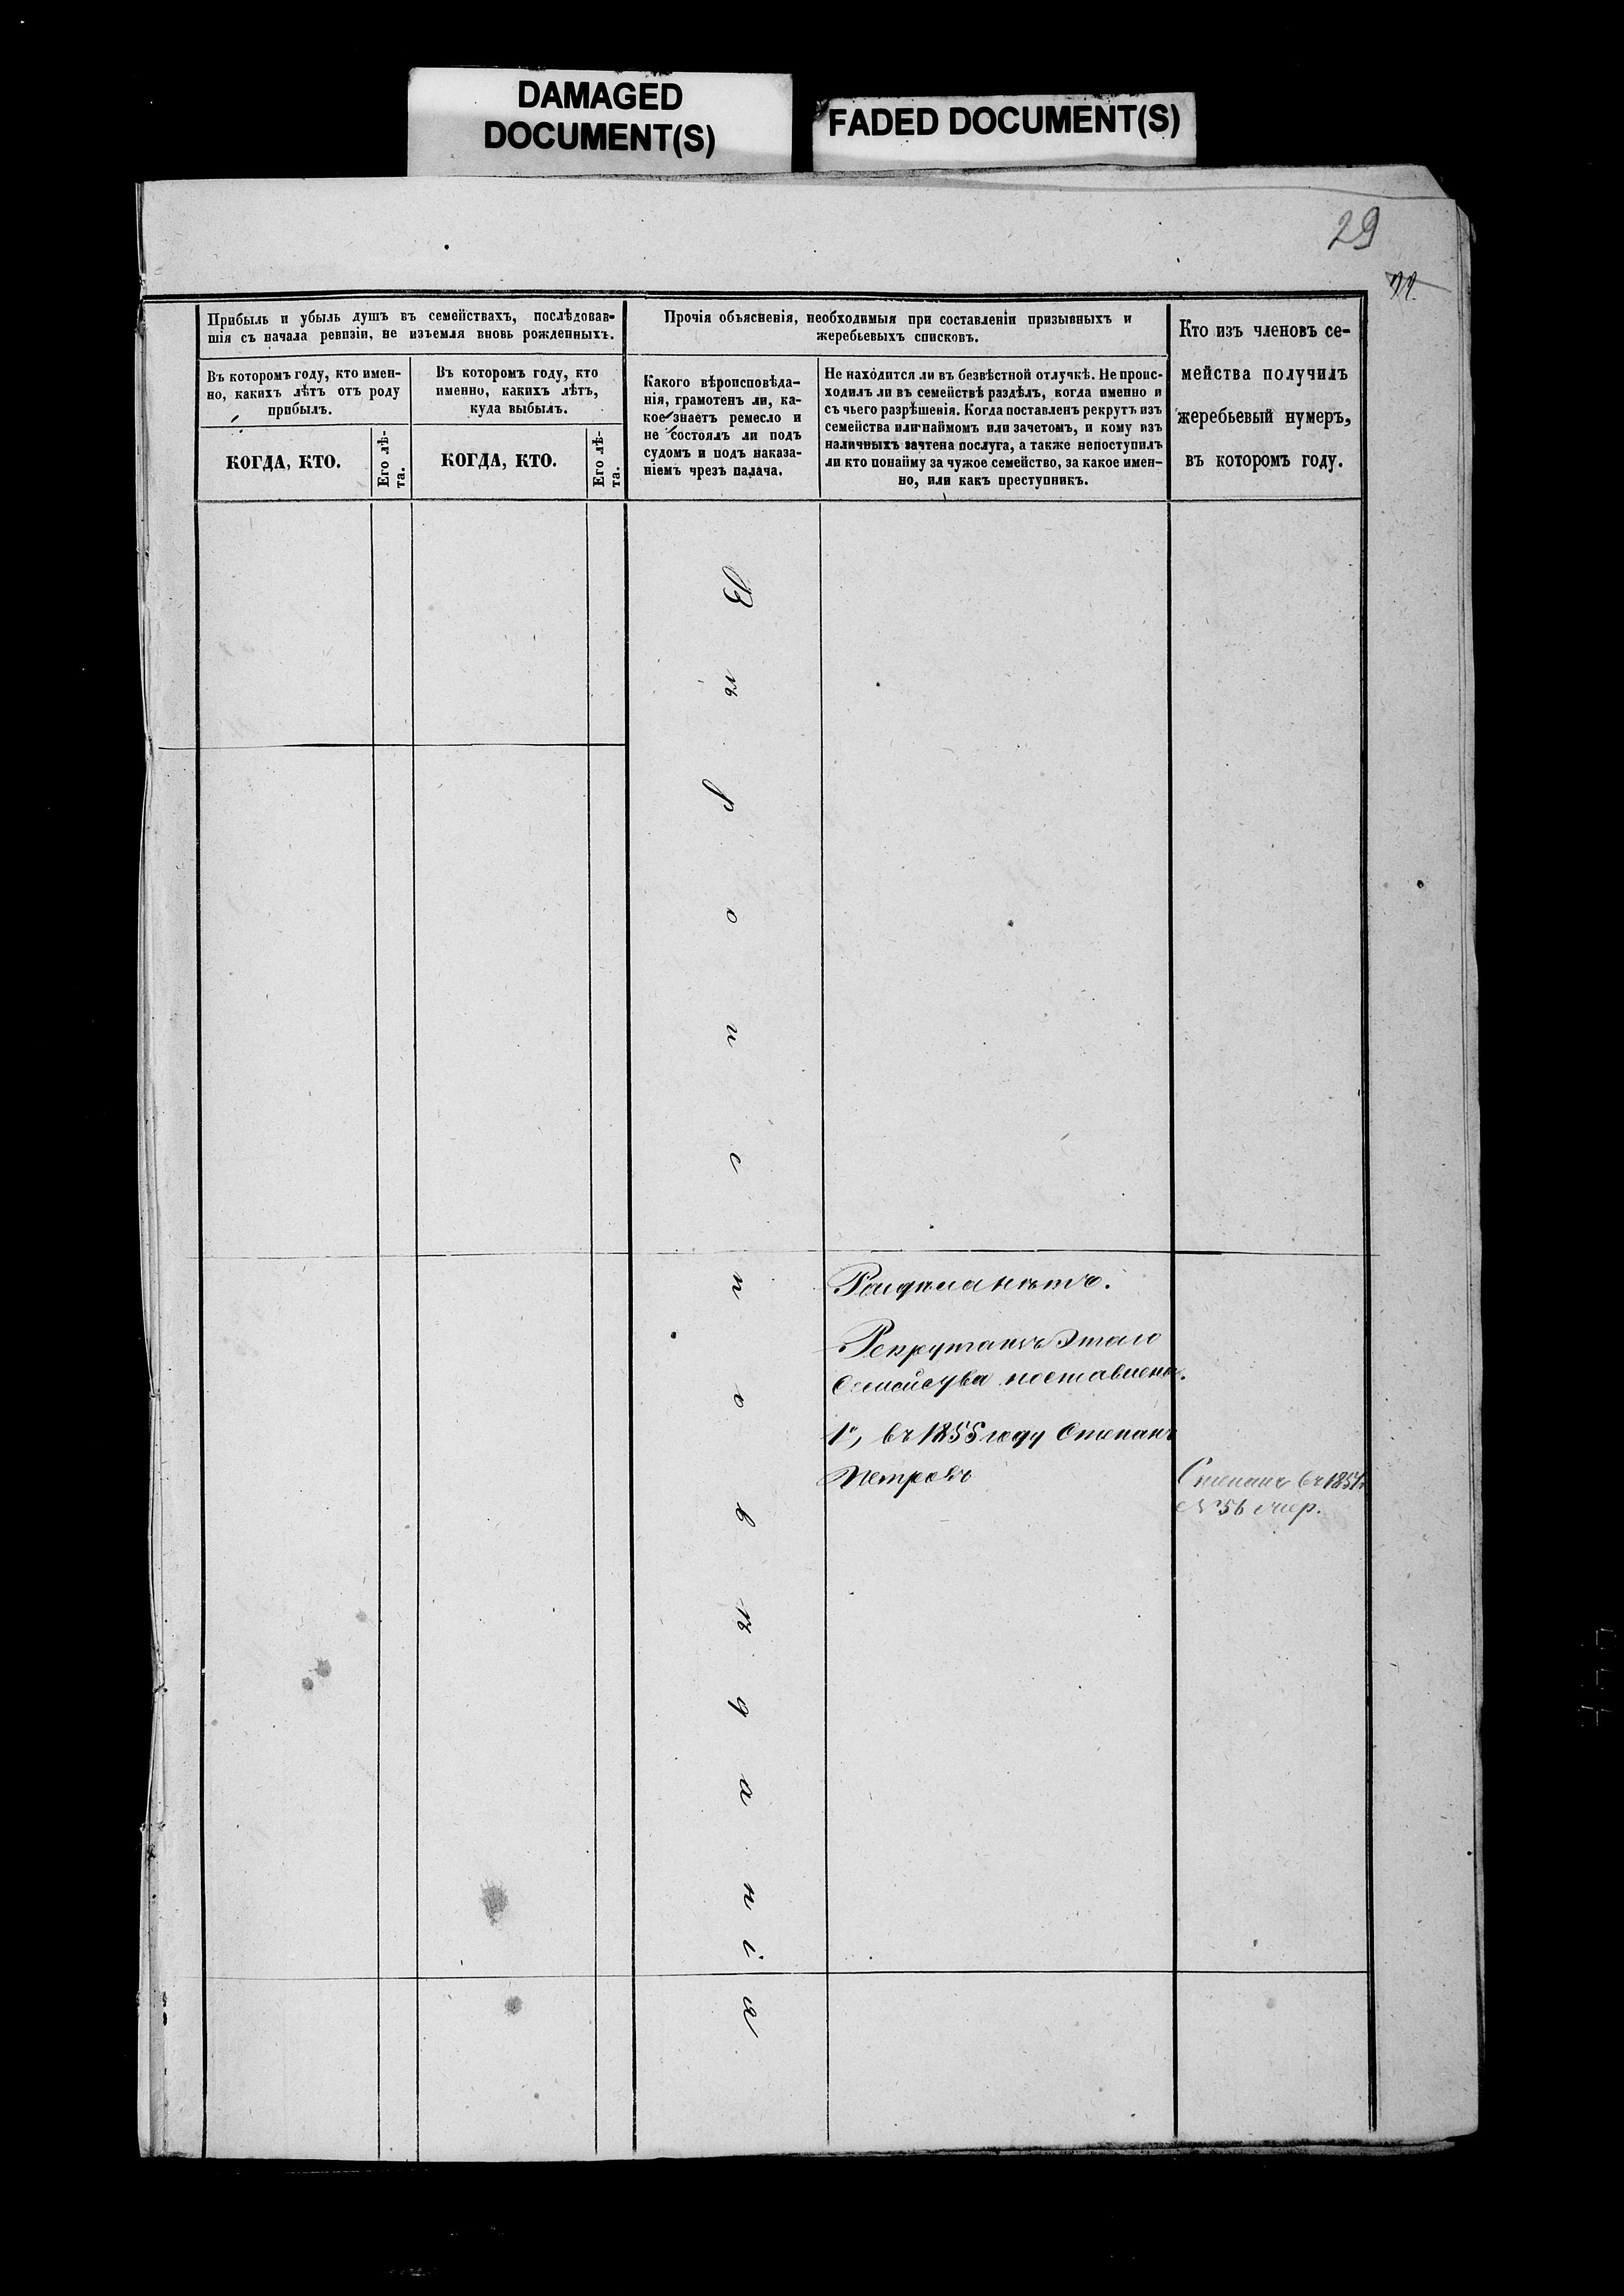 DAMAGED
DOCUMENT(S)
FADED DOCUMENT(S)
29
Прибыль и убыль душъ въ семействахъ, послѣдовав-
шія съ начала ревизіи, не изъемля вновь рожденныхъ.
Прочія объясненія, необходимыя при составленіи призывныхъ и
жеребьевыхъ списковъ.
Кто изъ членовъ се-
мейства получилъ
жеребьевый нумеръ,
въ которомъ году.
Въ которомъ году, кто имен-
но, какихъ лѣтъ отъ роду
прибылъ.
Въ которомъ году, кто
именно, какихъ лѣтъ,
куда выбылъ.
Какого вѣроисповѣда-
нія, грамотенъ ли, ка-
кое знаетъ ремесло и
не состоялъ ли подъ
судомъ и подъ наказа-
ніемъ чрезъ палача.
Не находится ли въ безвѣстной отлучкѣ. Не проис-
ходилъ ли въ семействѣ раздѣлъ, когда именно и
съ чьего разрѣшенія. Когда поставленъ рекрутъ изъ
семейства или наймомъ или зачетомъ, и кому изъ
наличныхъ зачтена послуга, а также непоступилъ
ли кто понайму за чужое семейство, за какое имен-
но, или какъ преступникъ.
КОГДА, КТО.
Его лѣ-
та.
КОГДА, КТО.
Его лѣ-
та.
В ѣ р о и с п о в ѣ д а н і я
Рекрутамъ Этаго
Семейства поставлено.
1е, въ 1855 году Степанъ
Петровъ
Степанъ въ 1851
№ 56 очер.